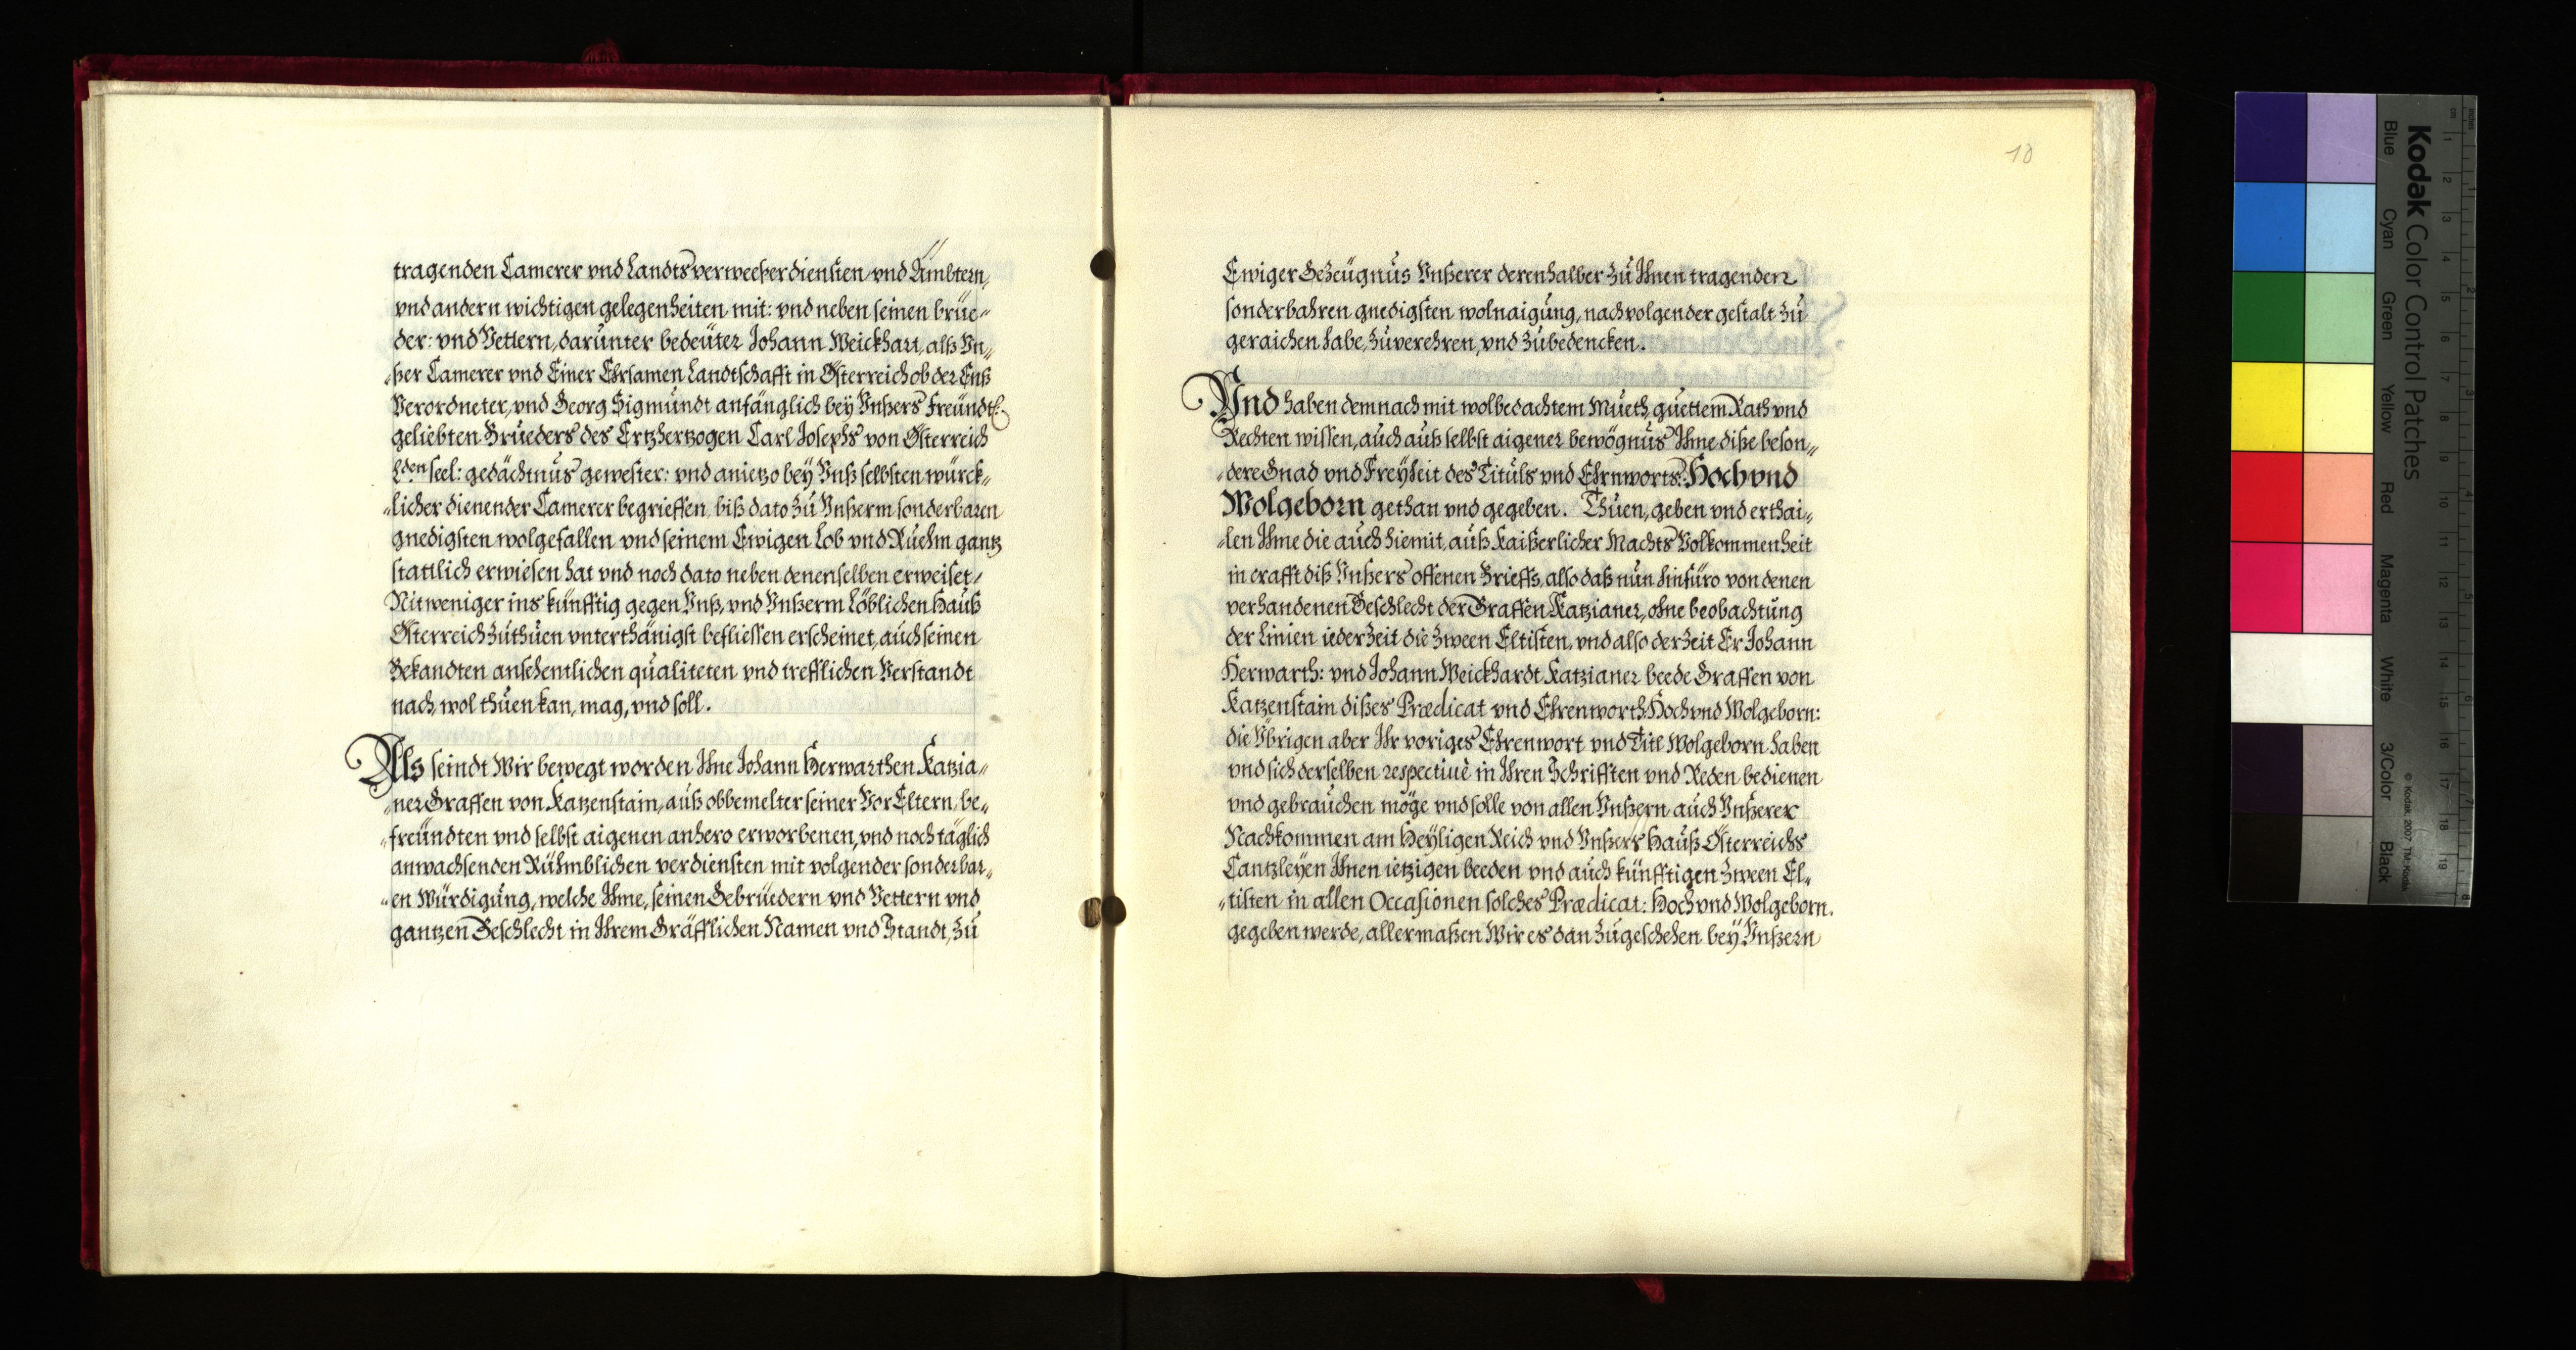 tragenden Camerer vnd Landtsverweeserdiensten vnd Ämbtern,
vnd andern wichtigen gelegenheiten mit: vnd neben seinen brüe„
der: vnd Vettern, darunter bedeüter Johann Weickhart, alß Vn„
„ßer Camerer vnd Einer Ehrsamen Landtschafft in Österreich ob der Enß
Verordneter, vnd Georg Sigmundt anfänglich bey Vnßers Freündtl.
geliebten Brueders des Ertzhertzogen Carl Josephs von Österreich
Lden seel: gedächtnus gewester: vnd anietzo bey Vnß selbsten würck„
„licher dienender Camerer begrieffen, biß dato zu Vnßerm sonderbaren
gnedigsten wolgefallen vnd seinem Ewigen Lob vnd Ruehm gantz
stattlich erwiesen hat vnd noch dato neben denenselben erweiset,
Nit weniger ins künfftig gegen Vnß, vnd Vnßerm Löblichen Hauß
Österreich zuthuen vnterthänigst befliessen erscheinet, auch seinen
Bekandten ansehentlichen qualiteten vnd trefflichen Verstandt
nach, wol thuen kan, mag, vnd soll.
Als seindt Wir bewegt worden Ihne Johann Herwarthen Katzia„
„ner Graffen von Katzenstain, auß obbemelter seiner VorEltern, be„
„freündten vnd selbst aigenen anhero erworbenen, vnd noch täglich
anwachsenden Rühmblichen verdiensten mit volgender sonderbar„
„en Würdigung, welche Ihme, seinen Gebrüedern vnd Vettern vnd
gantzen Geschlecht in Ihrem Gräfflichen Namen vnd Standt, zu
10
Ewiger Gezeügnus Vnßerer derenhalber zu Ihnen tragenden
sonderbahren gnedigsten wolnaigung, nachvolgender gestalt zu
geraichen habe, zuverehren, vnd zubedencken.
Vnd haben demnach mit wolbedachtem Mueth, guettem Rath vnd
Rechten wissen, auch auß selbst aigener bewögnus Ihme diße beson„
„dere Gnad vnd Freyheit des Tituls vnd Ehrnworts: Hoch vnd
Wolgeborn gethan vnd gegeben. Thuen, geben vnd erthai„
„len Ihme die auch hiemit, auß Kaißerlicher Machts Volkommenheit
in crafft diß Vnßers offenen Brieffs, also daß nun hinfüro von denen
verhandenen Geschlecht der Graffen Katzianer, ohne beobachtung
der Linien ieder Zeit die Zween Eltisten, vnd also der Zeit Er Johann
Herwarth: vnd Johann Weickhardt Katzianer beede Graffen von
Katzenstain dißes Prædicat vnd Ehrenworth Hoch vnd Wolgeborn:
die Vbrigen aber Ihr voriges Ehrenwort vnd Titl Wolgeborn haben
vnd sich derselben respectiuè in Ihren Schrifften vnd Reden bedienen
vnd gebrauchen möge vnd solle von allen Vnßern auch Vnßerer
Nachkommen am Heyligen Reich vnd Vnßers Hauß Österreichs
Cantzleyen Ihnen ietzigen beeden vnd auch künfftigen Zween El„
„tisten in allen Occasionen solches Prædicat: Hoch vnd Wolgeborn.
gegeben werde, allermaßen Wir es dan zugeschehen bey Vnßern